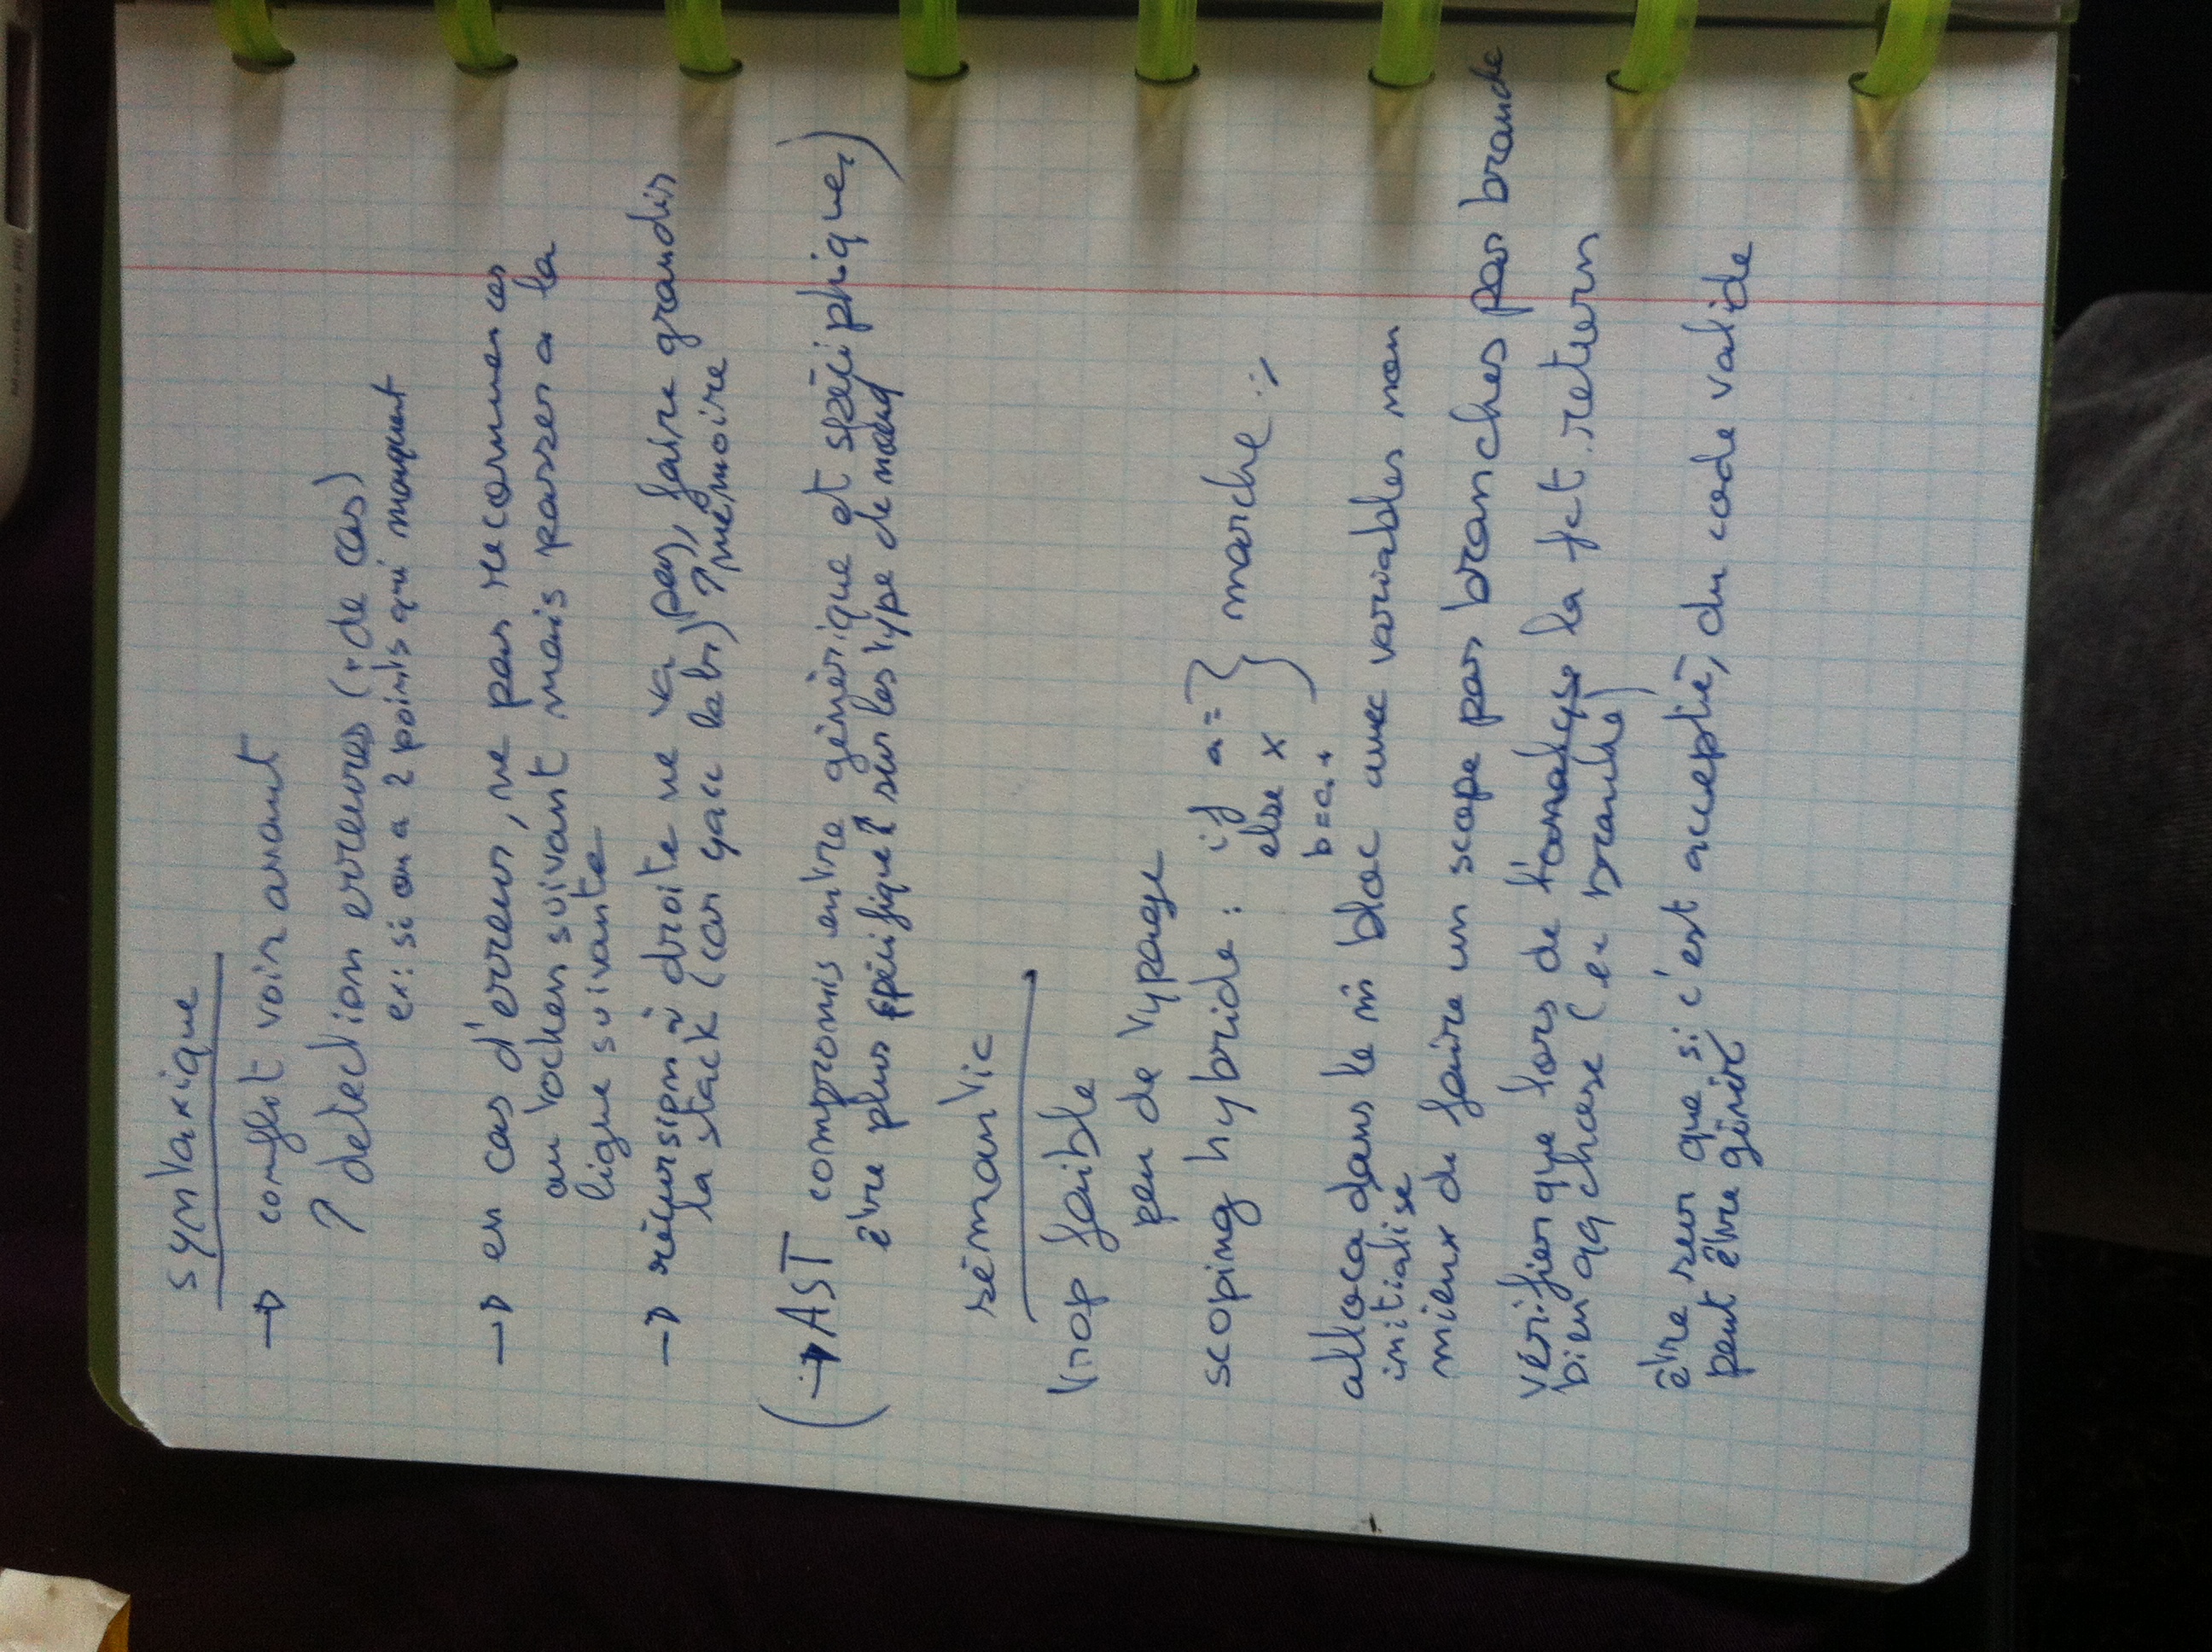 syntaxique
→ conflit voir avant
↑ detection erreures (+ de cas)
ex: si on a 2 points qui manquent
→ en cas d'erreur, ne pas recommencer
au tocken suivant mais passer a la
ligne suivante
→ récursion à droite ne va pas, faire grandir
la stack (car yacc lalr) ↑ mémoire
(→ AST compromis entre générique et spéciphique)
être plus spécifique ↑ sur les type de noeud
sémantic
trop faible
peu de typage
scoping hybride : if a = } marche :/
else x
b = a +
alloca dans le m̂ bloc avec variables non
initialisé
mieux de faire un scope par branches par branche
vérifier que lors de l'analyse la fct return
bien qq chose (ex branche)
être sur que si c'est accepté, du code valide
peut être généré